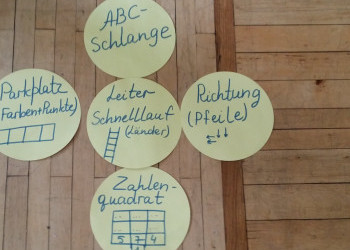 ABC-
Schlange
Parkplatz
(Farben+Punkte)
Leiter-
Schnelllauf
(Länder)
Richtung
(Pfeile)
Zahlen-
quadrat
5 7 4